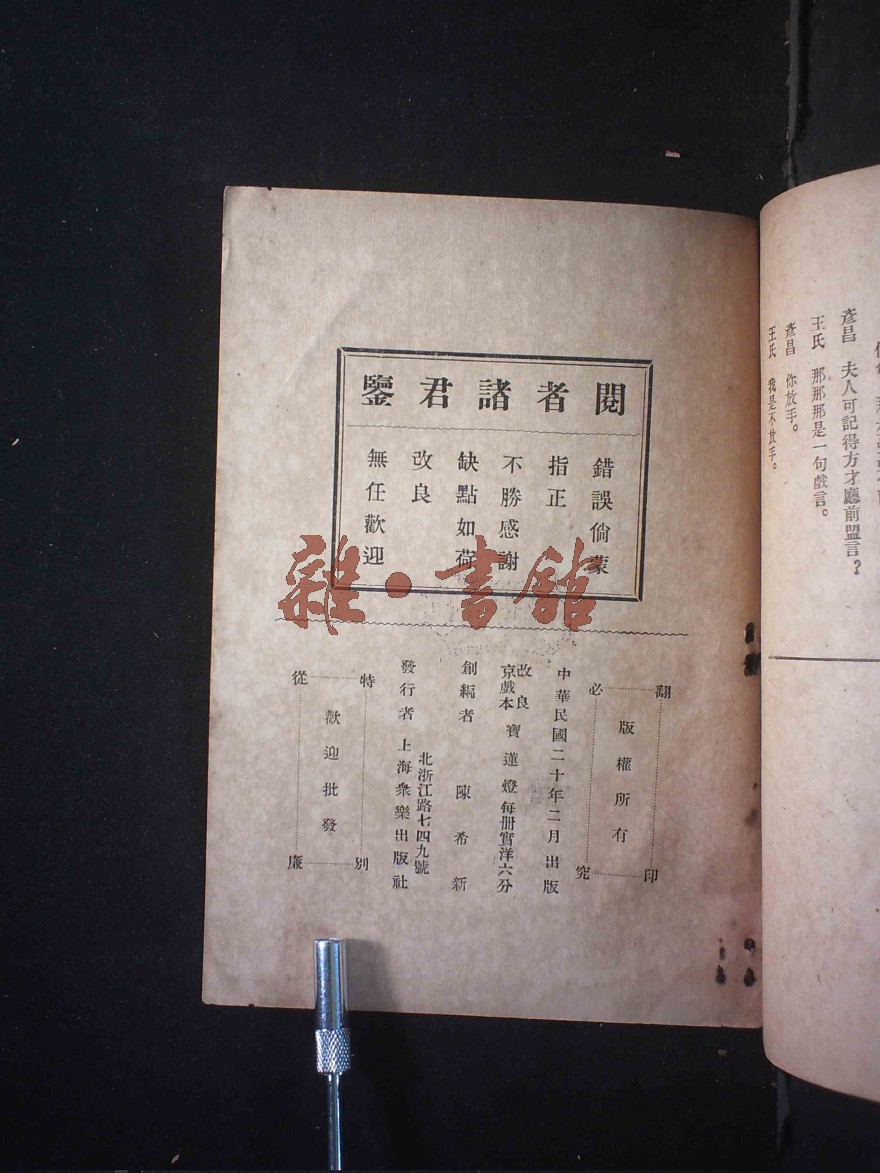 彥昌　夫人可記得方才廳前盟言？
王氏　那那那是一句戲言。
彥昌　你放手。
王氏　我是不放手。
閱者諸君鑒
錯誤倘蒙
指正
不勝感謝
缺點如荷
改良
無任歡迎
雜·書館
翻印必究
版權所有
中華民國二十年二月出版
改良京戲本　寶蓮燈　每冊實洋六分
創編者　陳希新
北浙江路七四九號
發行者　上海衆樂出版社
特別從廉
歡迎批發